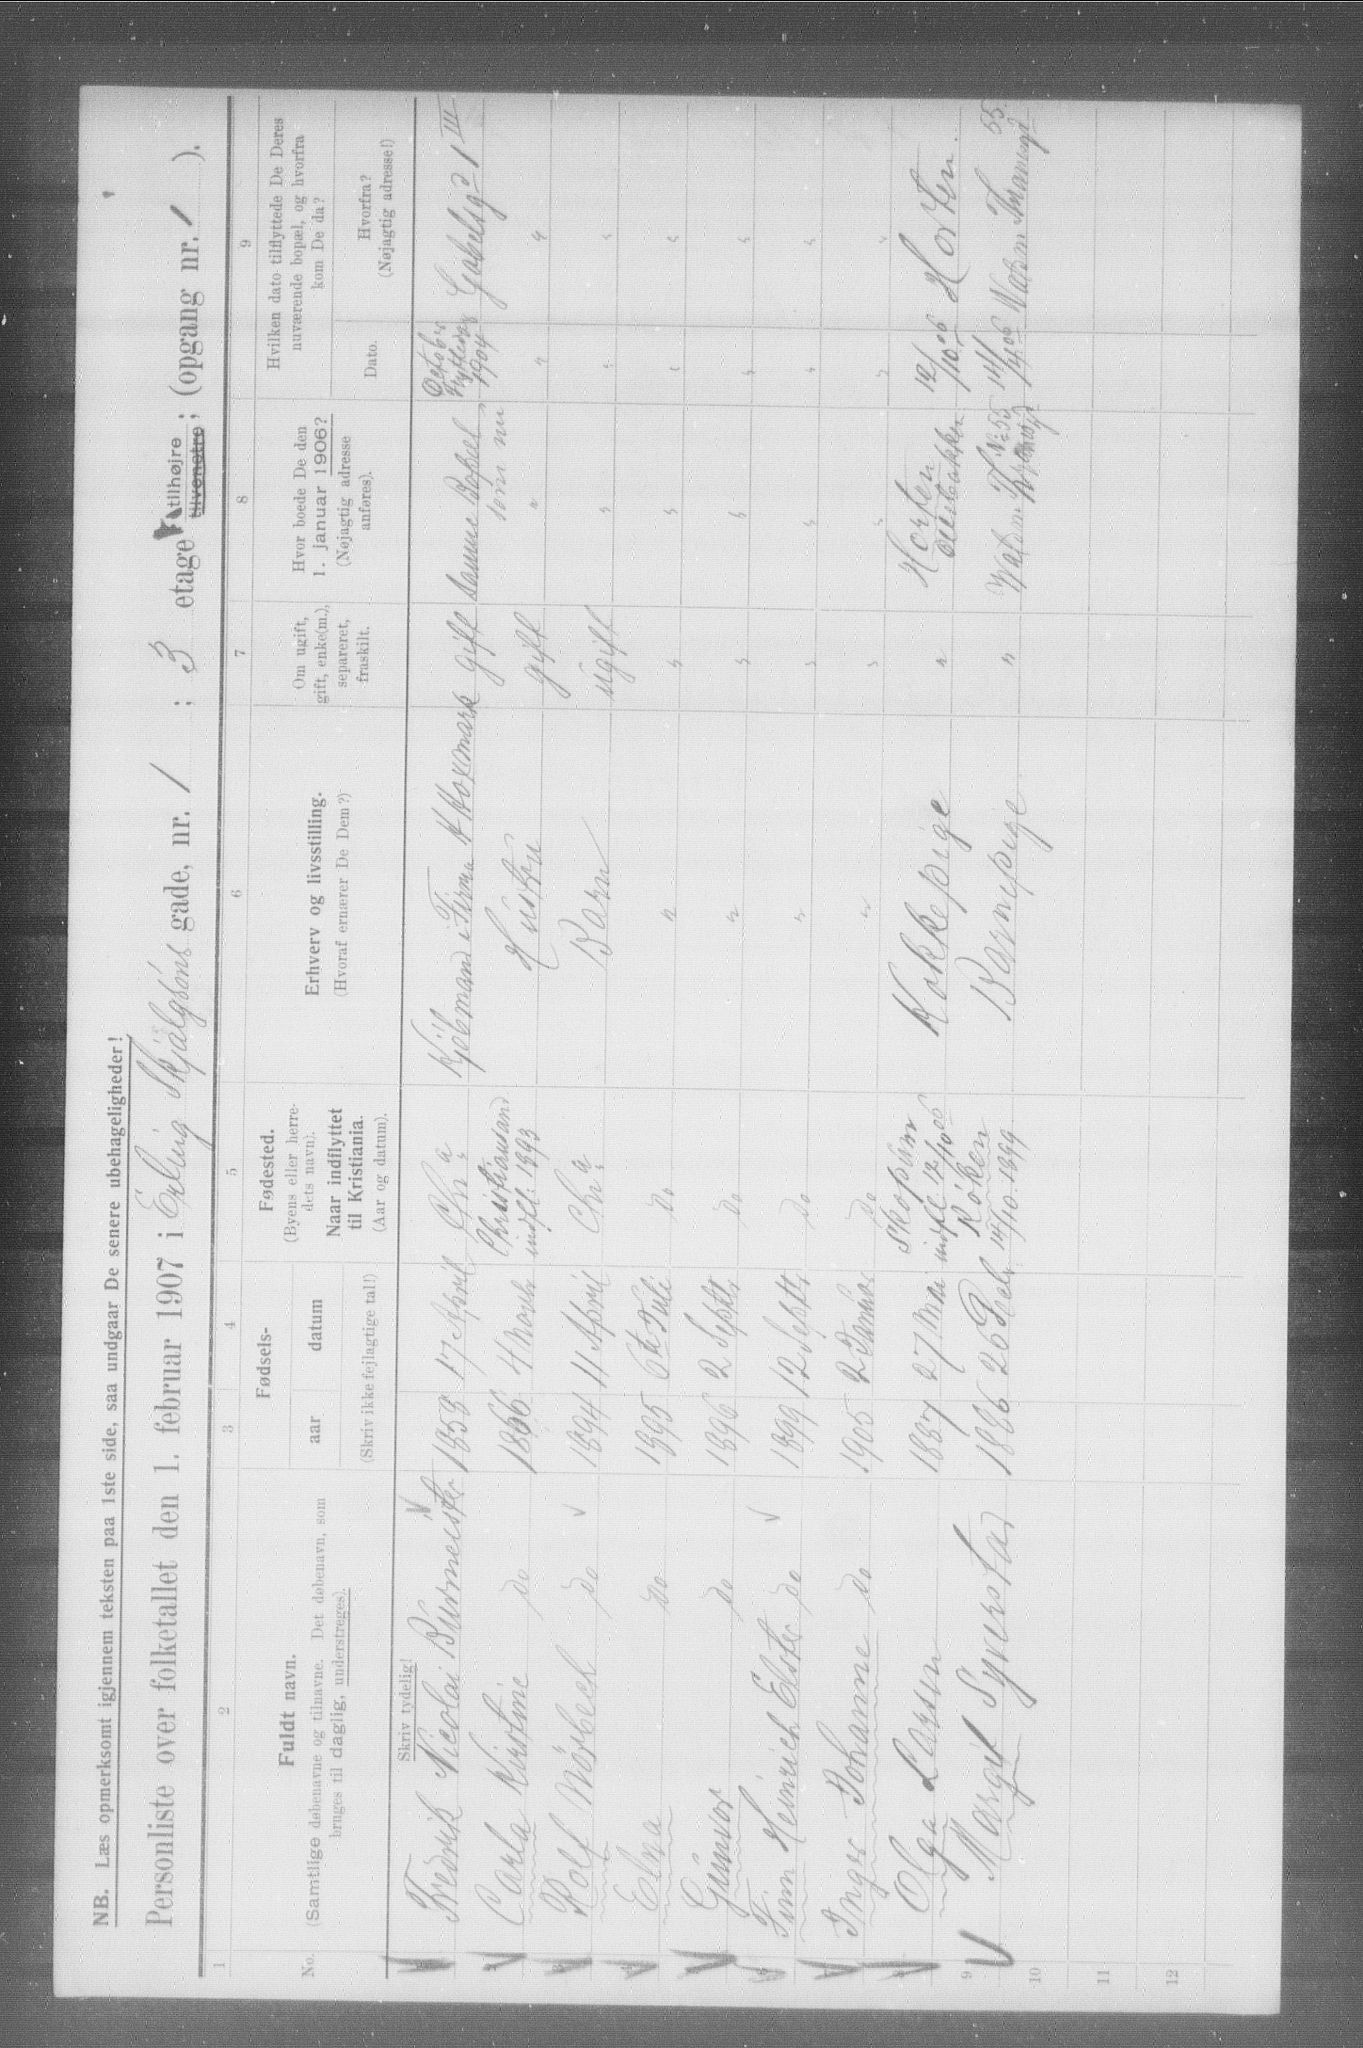 NB. Læs opmerksomt igjennem teksten paa 1ste side, saa undgaar De senere ubehageligheder!
Personliste over folketallet den 1. februar 1907 i Erling Skjalgsøns gade, nr. 1 ; 3 etage tilhøjre tilvenstre; (opgang nr. 1 ).
1 2 3 4 5 6 7 8 9
No.
Fuldt navn.
(Samtlige døbenavne og tilnavne. Det døbenavn, som
bruges til daglig, understreges).
Fødsels-
aar datum
(Skriv ikke fejlagtige tal!)
Fødested.
(Byens eller herre-
dets navn).
Naar indflyttet
til Kristiania.
(Aar og datum).
Erhverv og livsstilling.
(Hvoraf ernærer De Dem?)
Om ugift,
gift, enke(m.),
separeret,
fraskilt.
Hvor boede De den
1. januar 1906?
(Nøjagtig adresse
anføres).
Hvilken dato tilflyttede De Deres
nuværende bopæl, og hvorfra
kom De da?
Dato.
Hvorfra?
(Nøjagtig adresse!)
Skriv tydelig!
Fredrik Nicolai Burmeister 1853 17 April Chr a Kjøbmand i Firma gift samme Bopæl som nu October Flytting 1904 1 III
Carla Kirstine do 1866 4 Christiansand indfl. 1893 Hustru gift " " "
Rolf Mörbeck do 1894 11 April Chr a Barn ugift " " "
Elna do 1895 6te Juli do " " " " "
Gunvor do 1896 2 Septbr do " " " " "
Finn Heinrich Elster do 1899 12 Septbr do " " " " "
Inger Johanne do 1905 2 Januar do " " " " "
Olga Larsen 1887 27 Mai Skopum indfl 12/10 06 Kokkepige " Horten 12/10 06 Horten.
9 Margit Syverstad 1886 26 Febr Röken 14/10. 1899 Barnepige " No 55 14/4 06 55.
10
11
12